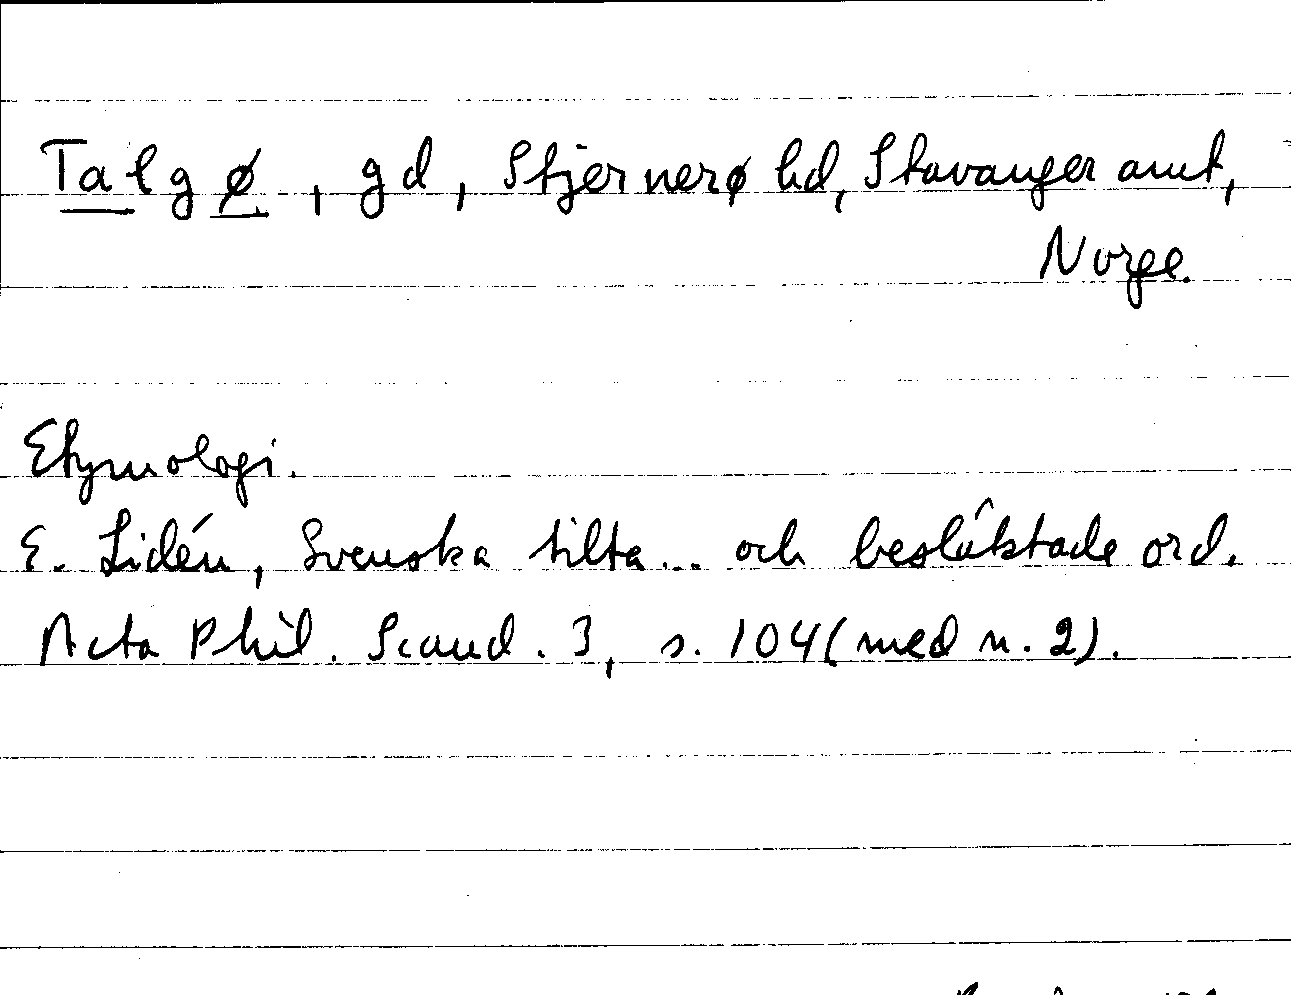 Talgø, gd, Stjernerø hd, Stavanger amt,
Norge.
Etymologi.
E. Lidén, Svenska tilta... och besläktade ord.
Acta Phil. Scand. 3, s. 104 (med n. 2).